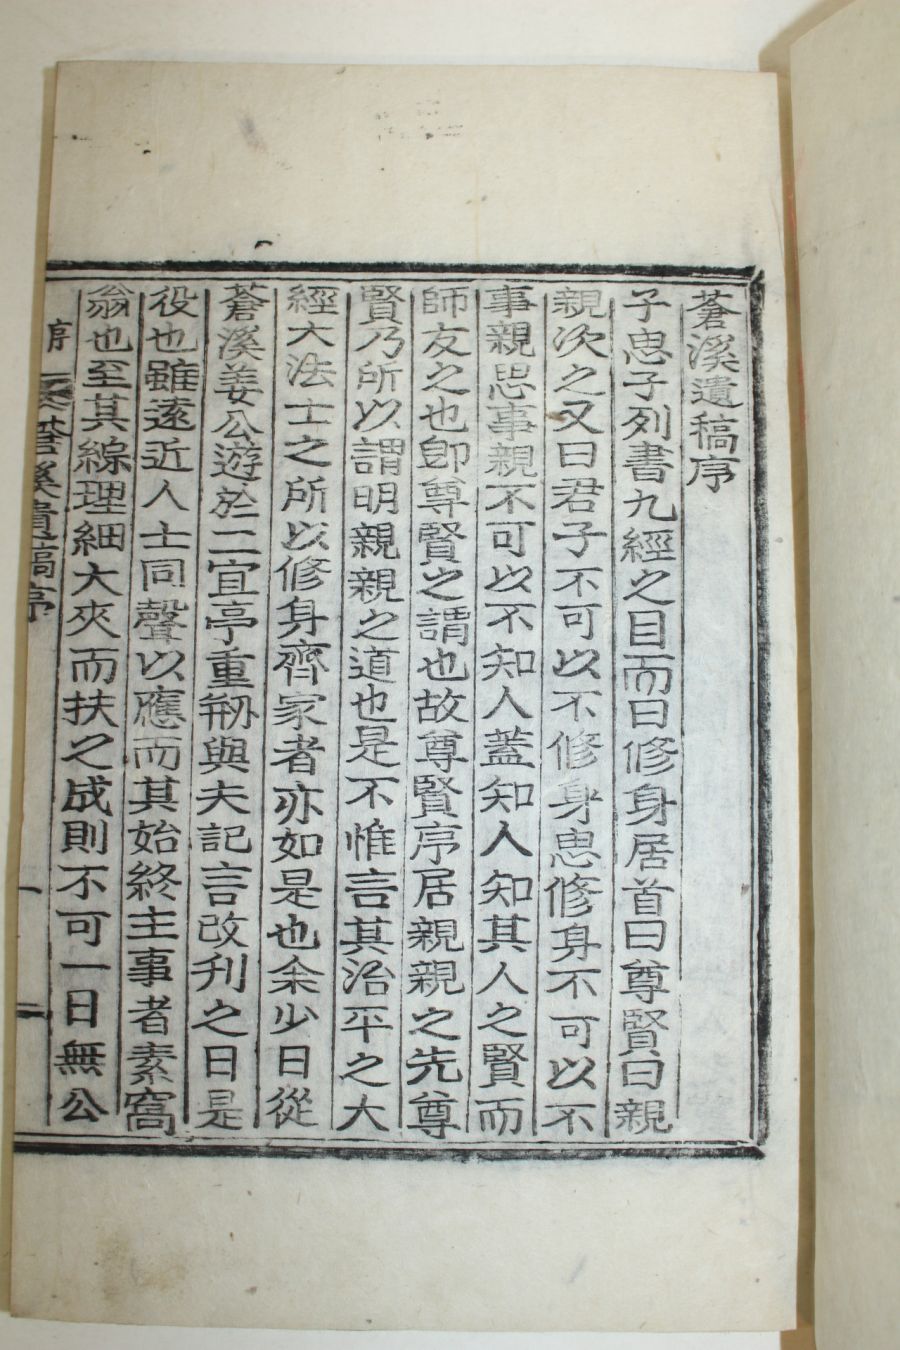 蒼溪遺稿序
子思子列書九經之目而曰修身居首曰尊賢曰親
親次之又曰君子不可以不修身思修身不可以不
事親思事親不可以不知人蓋知人知其人之賢而
師友之也卽尊賢之謂也故尊賢序居親親之先尊
賢乃所以謂明親親之道也是不惟言其治平之大
經大法士之所以修身齊家者亦如是也余少日從
蒼溪姜公遊於二宜亭重刱與夫記言改刋之日是
役也雖遠近人士同聲以應而其始終主事者素窩
翁也至其綜理細大夾而扶之成則不可一日無公
序 蒼溪遺稿序 一